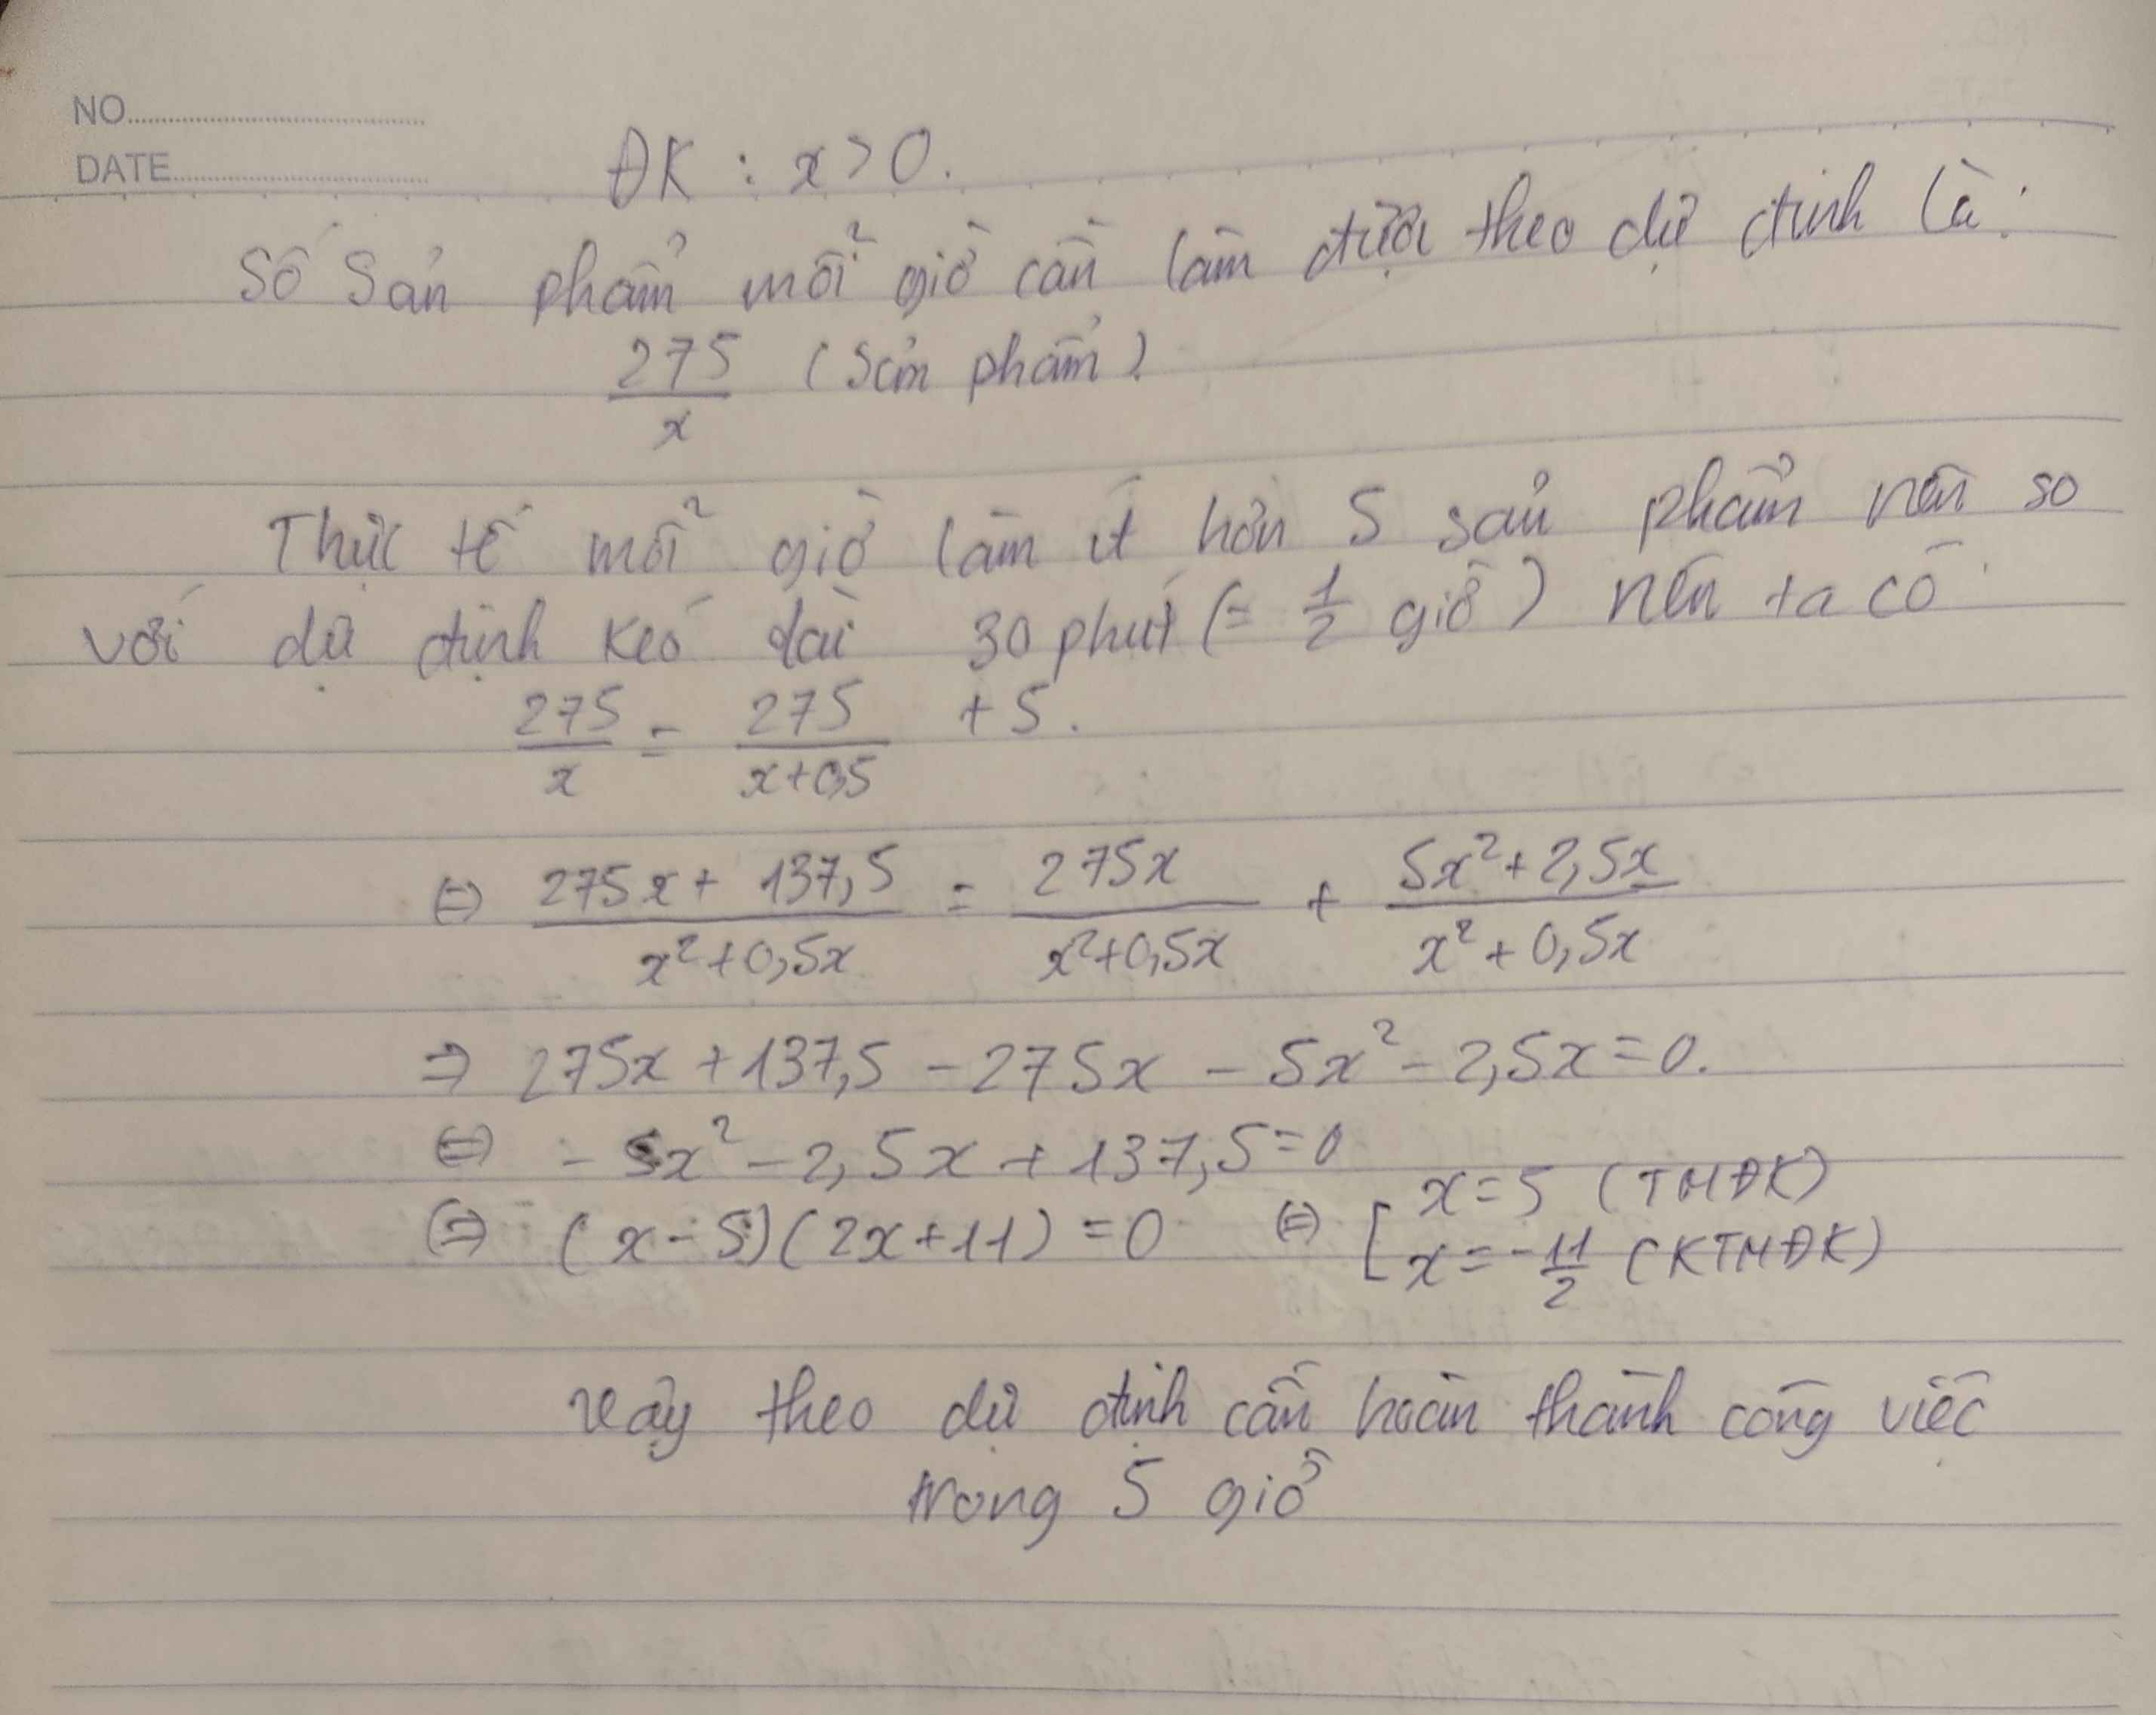 NO.
DATE
ĐK : x > 0.
Số sản phẩm mỗi giờ cần làm được theo dự định là:
275/x (sản phẩm)
Thực tế mỗi giờ làm ít hơn 5 sản phẩm nên so
với dự định kéo dài 30 phút (= 1/2 giờ) nên ta có
275/x = 275/(x+0,5) + 5.
⇔ (275x + 137,5)/(x²+0,5x) = 275x/(x²+0,5x) + (5x²+2,5x)/(x²+0,5x)
⇒ 275x + 137,5 - 275x - 5x² - 2,5x = 0.
⇔ - 5x² - 2,5x + 137,5 = 0
⇔ (x - 5)(2x + 11) = 0 ⇔ [ x = 5 (TMĐK)
x = -11/2 (KTMĐK)
Vậy theo dự định cần hoàn thành công việc
trong 5 giờ